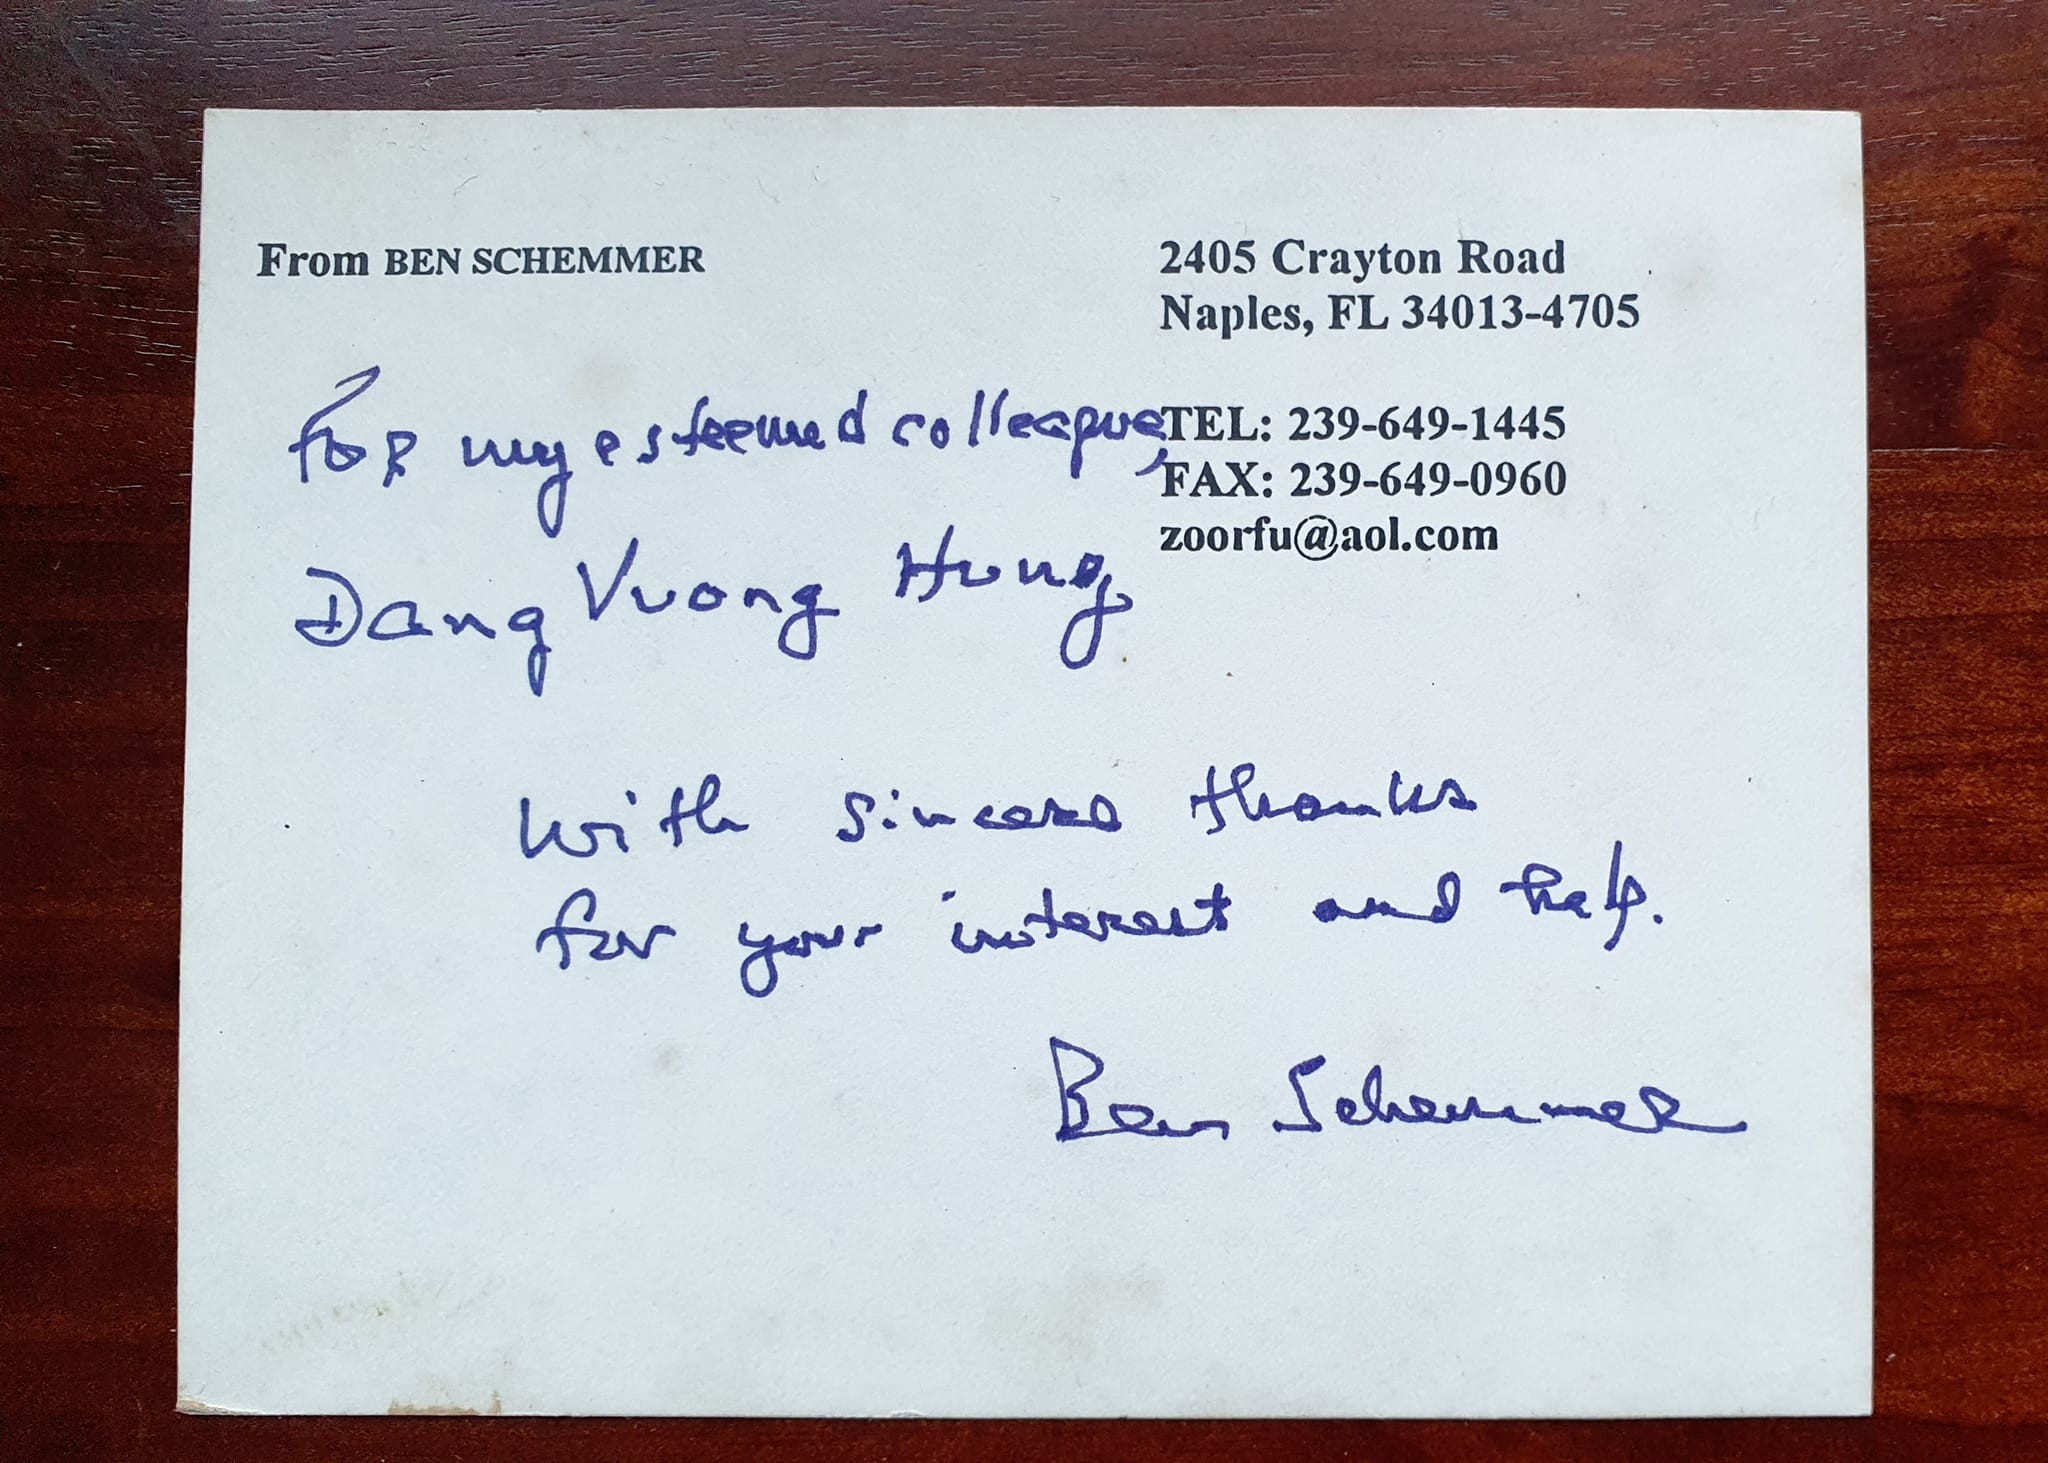 From BEN SCHEMMER
2405 Crayton Road
Naples, FL 34013-4705
TEL: 239-649-1445
FAX: 239-649-0960
zoorfu@aol.com
For my esteemed colleague,
Dang Vuong Hung,
With sincere thanks
for your interest and help.
Ben Schemmer